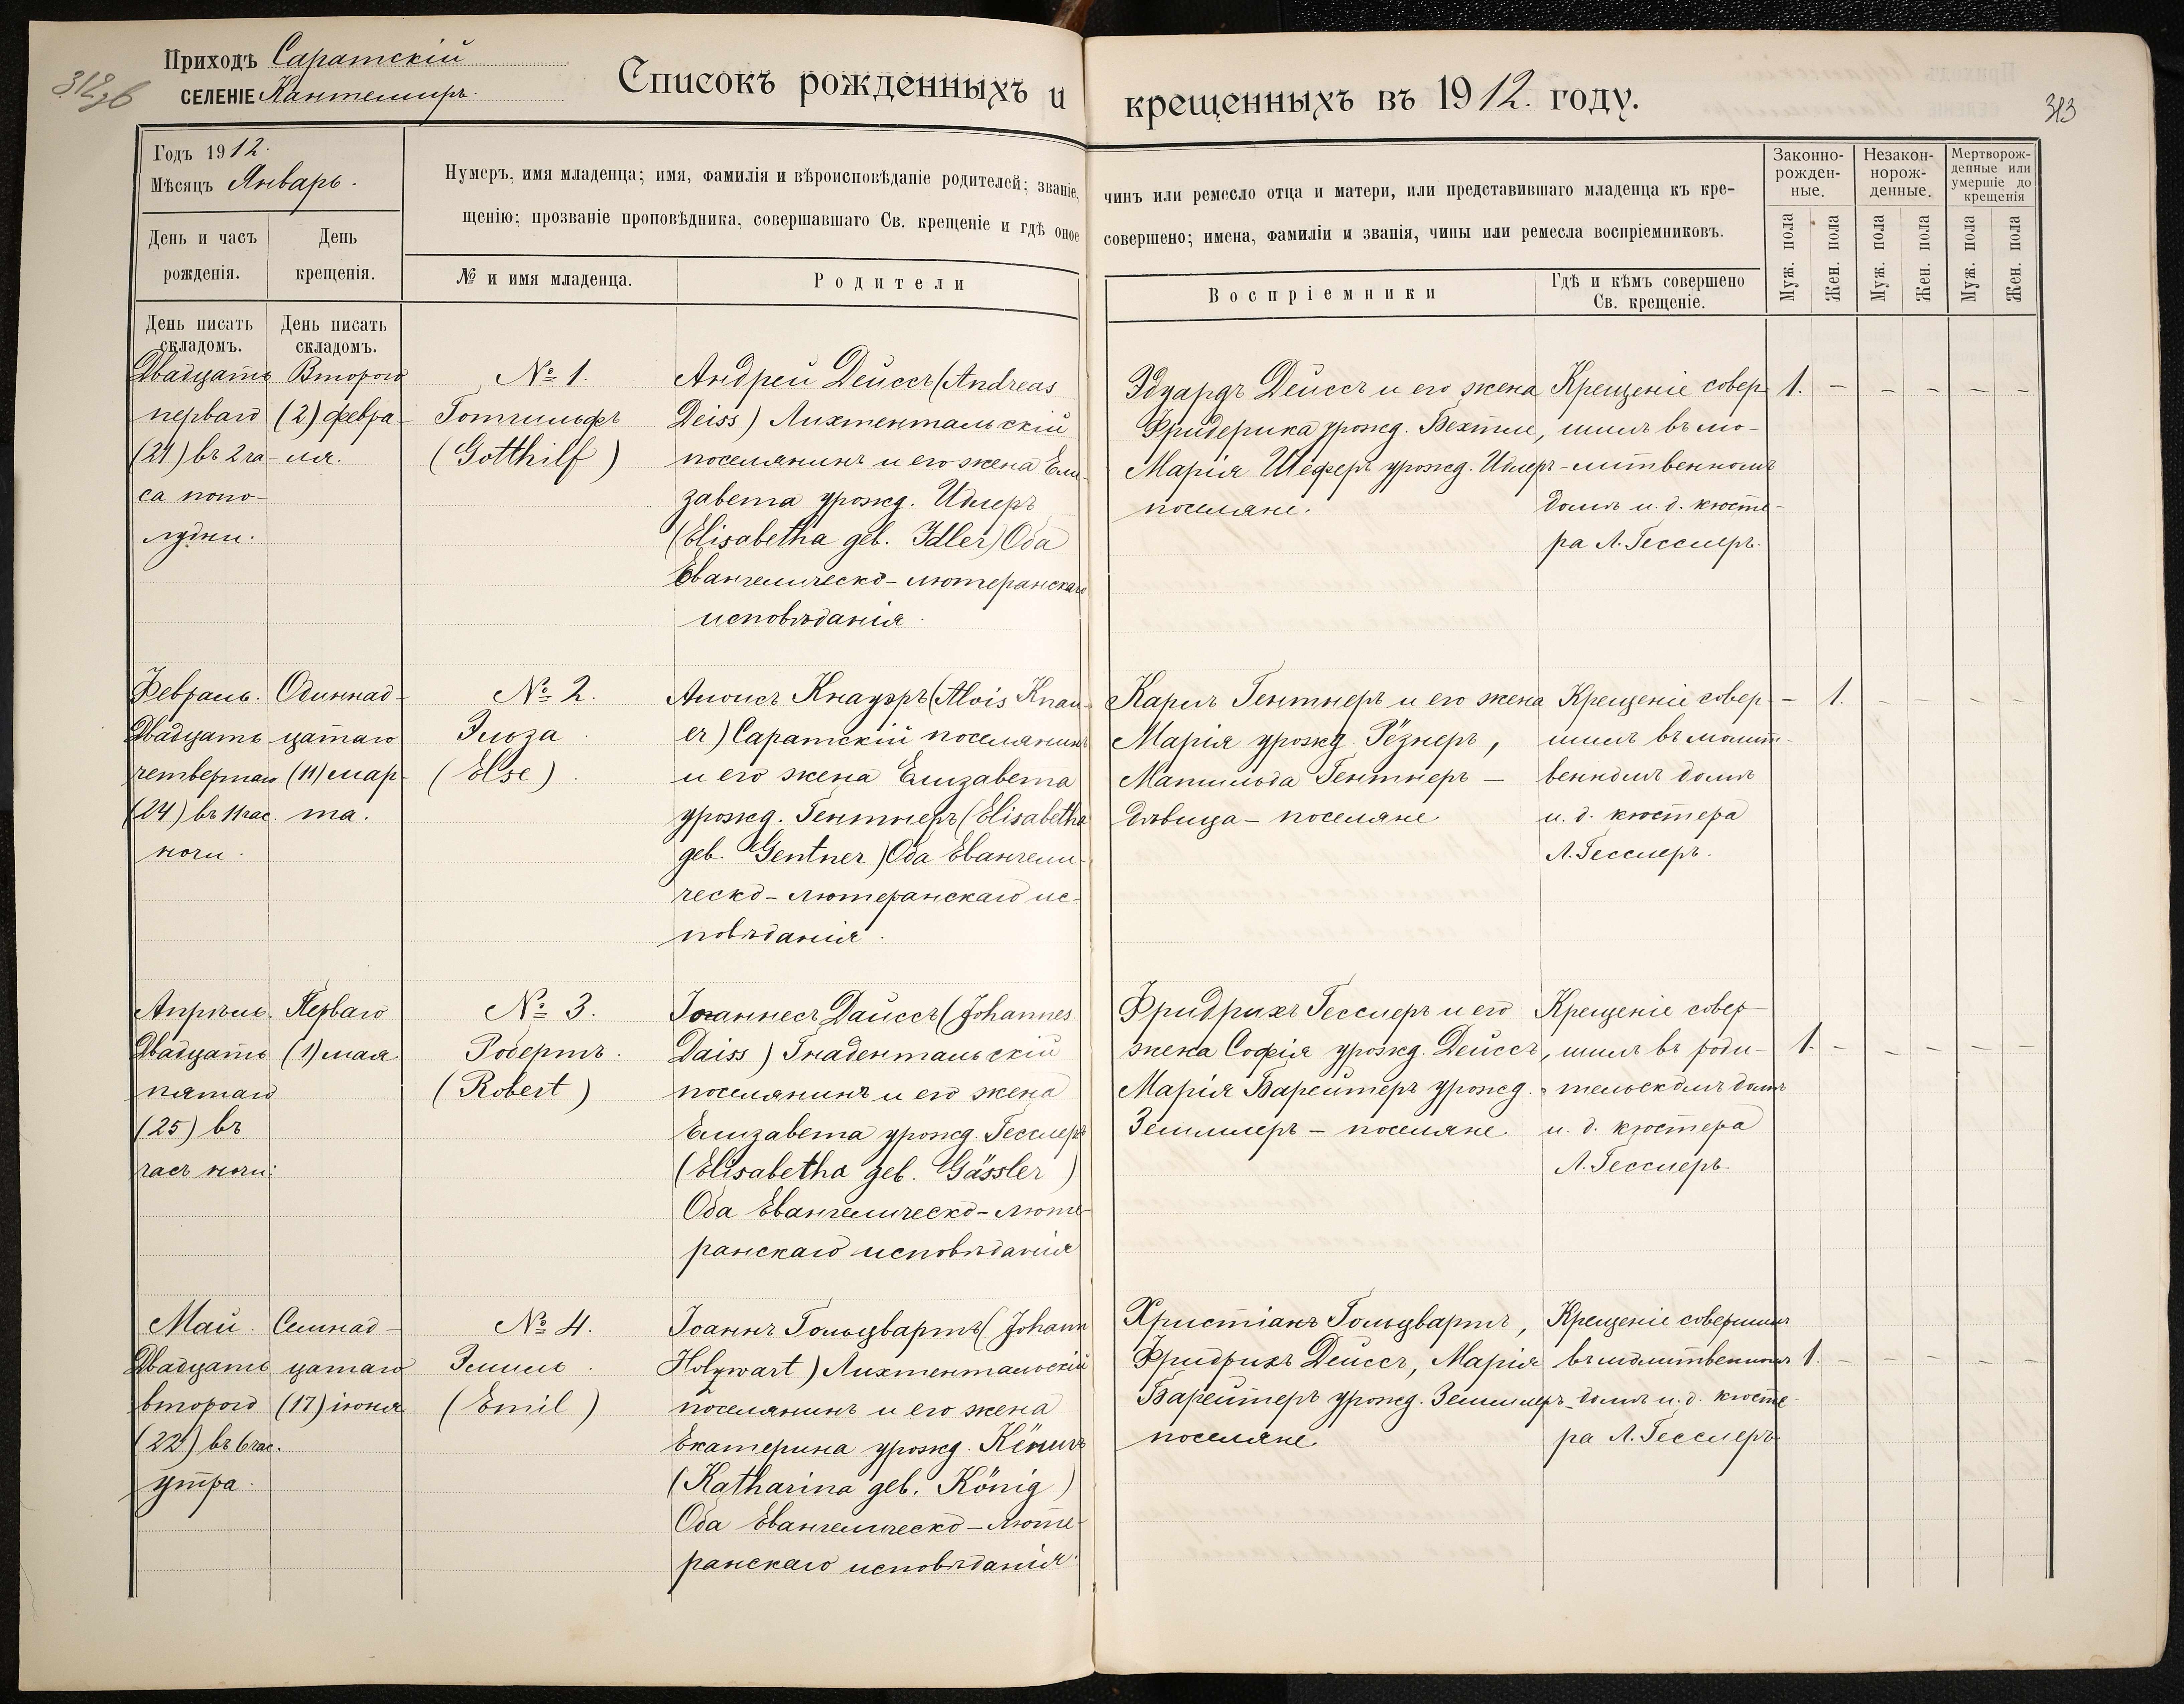 312об
Приходъ Саратскій
СЕЛЕНІЕ Кантемиръ.
Списокъ рожденныхъ и
крещенныхъ въ 1912. году.
313
Годъ 1912.
Мѣсяцъ Январь.
Нумеръ, имя младенца; имя, фамилія и вѣроисповѣданіе родителей; званіе,
щенію; прозваніе проповѣдника, совершавшаго Св. крещеніе и гдѣ оное
чинъ или ремесло отца и матери, или представившаго младенца къ кре-
совершено; имена, фамиліи и званія, чины или ремесла воспріемниковъ.
День и часъ
рожденія.
День
крещенія.
№ и имя младенца.
Родители
Воспріемники
Гдѣ и кѣмъ совершено
Св. крещеніе.
Законно-
рожден-
ные.
Незакон-
норож-
денные.
Мертворож-
денные или
умершіе до
крещенія
Муж. пола
Жен. пола
Муж. пола
Жен. пола
Муж. пола
Жен. пола
День писать
складомъ.
День писать
складомъ.
Двадцать
перваго
(21) въ 2 ча-
са попо-
лудни.
Второго
(2) февра-
ля.
№ 1.
Готгильфъ
(Gotthilf)
Андрей Дейссъ (Andreas
Deiss) Лихтентальскій
поселянинъ и его жена Ели-
завета урожд. Идлеръ
(Elisabetha geb. Idler) Оба
Евангелическо-лютеранскаго
исповѣданія.
Эдуардъ Дейссъ и его жена
Фридерика урожд. Бехтле,
Марія Шеферъ урожд. Идлеръ-
поселяне.
Крещеніе совер-
шилъ въ мо-
литвенномъ
домѣ и. д. кюсте-
ра Л. Гесслеръ.
1. – – – – –
Февраль.
Двадцать
четвертаго
(24) въ 11 час.
ночи.
Одиннад-
цатаго
(11) мар-
та.
№ 2.
Эльза.
(Else).
Алоисъ Кнауэръ (Alois Knau-
er) Саратскій поселянинъ
и его жена Елизавета
урожд. Гентнеръ (Elisabetha
geb. Gentner) Оба Евангели-
ческо-лютеранскаго ис-
повѣданія.
Карлъ Гентнеръ и его жена
Марія урожд. Рёзнеръ,
Матильда Гентнеръ –
дѣвица – поселяне
Крещеніе совер-
шилъ въ молит-
венномъ домѣ
и. д. кюстера
Л. Гесслеръ.
– 1. – – – –
Апрѣль.
Двадцать
пятаго
(25) въ
часъ ночи.
Перваго
(1) мая.
№ 3.
Робертъ.
(Robert)
Іоаннесъ Дайссъ (Johannes
Daiss) Гнадентальскій
поселянинъ и его жена
Елизавета урожд. Гесслеръ
(Elisabetha geb. Gässler)
Оба Евангелическо-люте-
ранскаго исповѣданія
Фридрихъ Гесслеръ и его
жена Софія урожд. Дейссъ,
Марія Барейтеръ урожд.
Земмлеръ – поселяне.
Крещеніе совер-
шилъ въ роди-
тельскомъ домѣ
и. д. кюстера
Л. Гесслеръ.
1. – – – – –
Май.
Двадцать
второго
(22) въ 6 час.
утра.
Семнад-
цатаго
(17) іюня
№ 4.
Эмиль.
(Emil)
Іоаннъ Гольцвартъ (Johann
Holzwart) Лихтентальскій
поселянинъ и его жена
Екатерина урожд. Кёнигъ
(Katharina geb. König)
Оба Евангелическо-люте-
ранскаго исповѣданія.
Христіанъ Гольцвартъ,
Фридрихъ Дейссъ, Марія
Барейтеръ урожд. Земмлеръ-
поселяне.
Крещеніе совершилъ
въ молитвенномъ
домѣ и. д. кюсте-
ра Л. Гесслеръ.
1. – – – – –